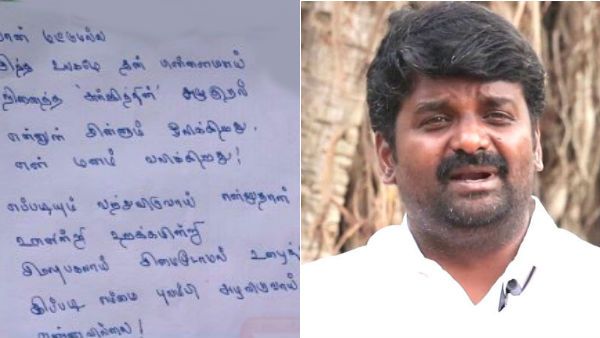 நான் மட்டுமல்ல
இந்த உலகமே தன் பிள்ளையாய்
நினைத்த 'சுர்ஜித்தின்' அழுகுரல்
என்னுள் இன்னும் ஒலிக்கிறது.
என் மனம் வலிக்கிறது!
எப்படியும் வந்துவிடுவாய் என்றுதான்
ஊனின்றி உறக்கமின்றி
இரவுபகலாய் இமைமூடாமல் உழை
இப்படி எம்மை புலம்பி அழவிடுவாய்